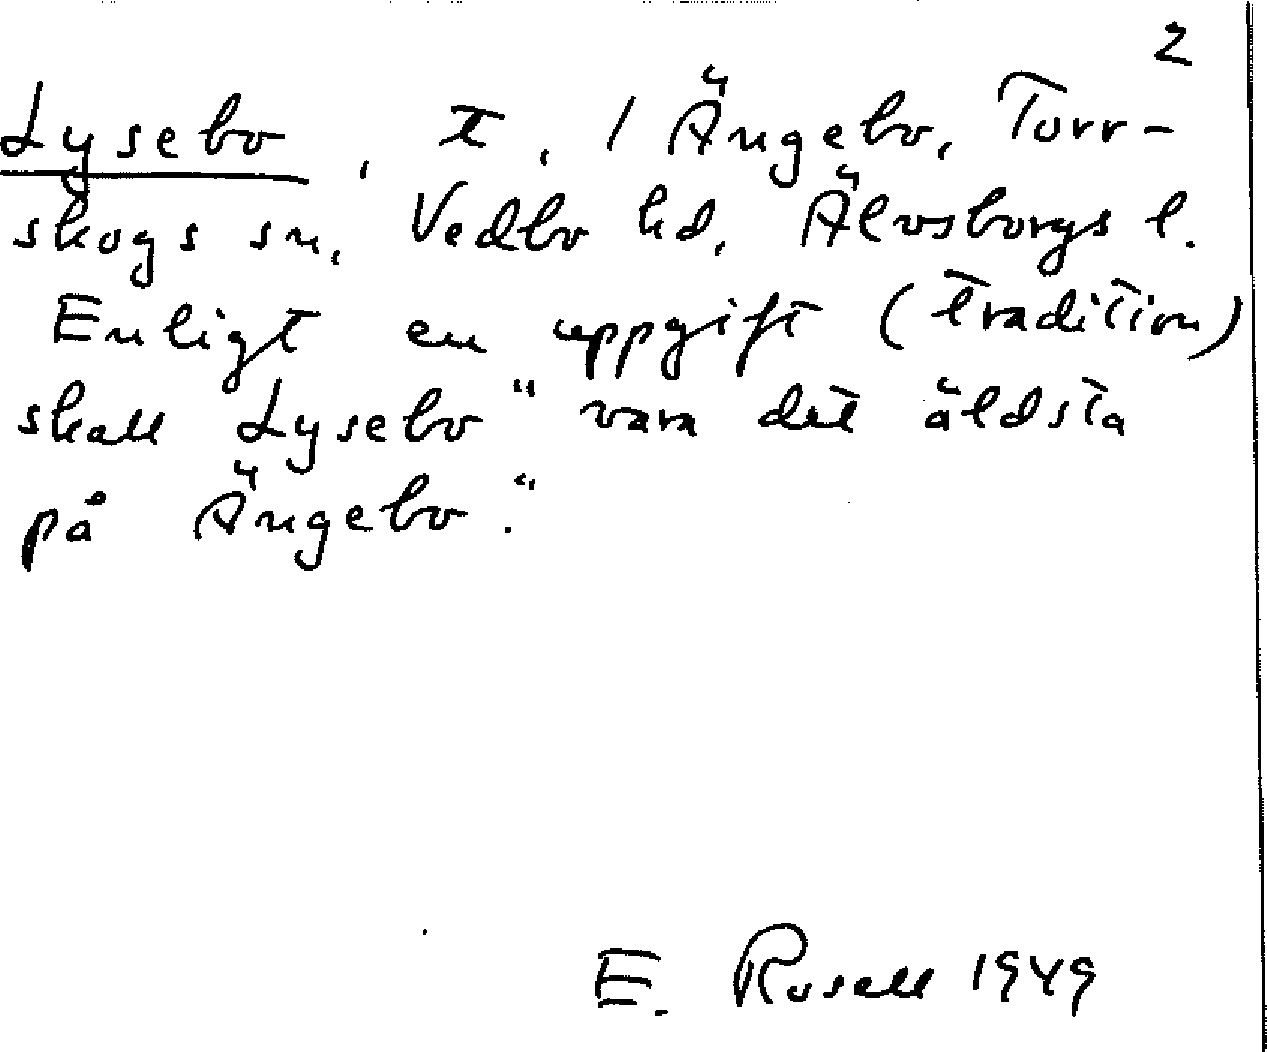 2
Lysebo, t., 1 Ängebo, Torr-
skogs sn, Vedbo hd, Älvsborgs l.
Enligt en uppgift (tradition)
skall Lysebo "vara det äldsta
på Ängebo."
E. Rosell 1949